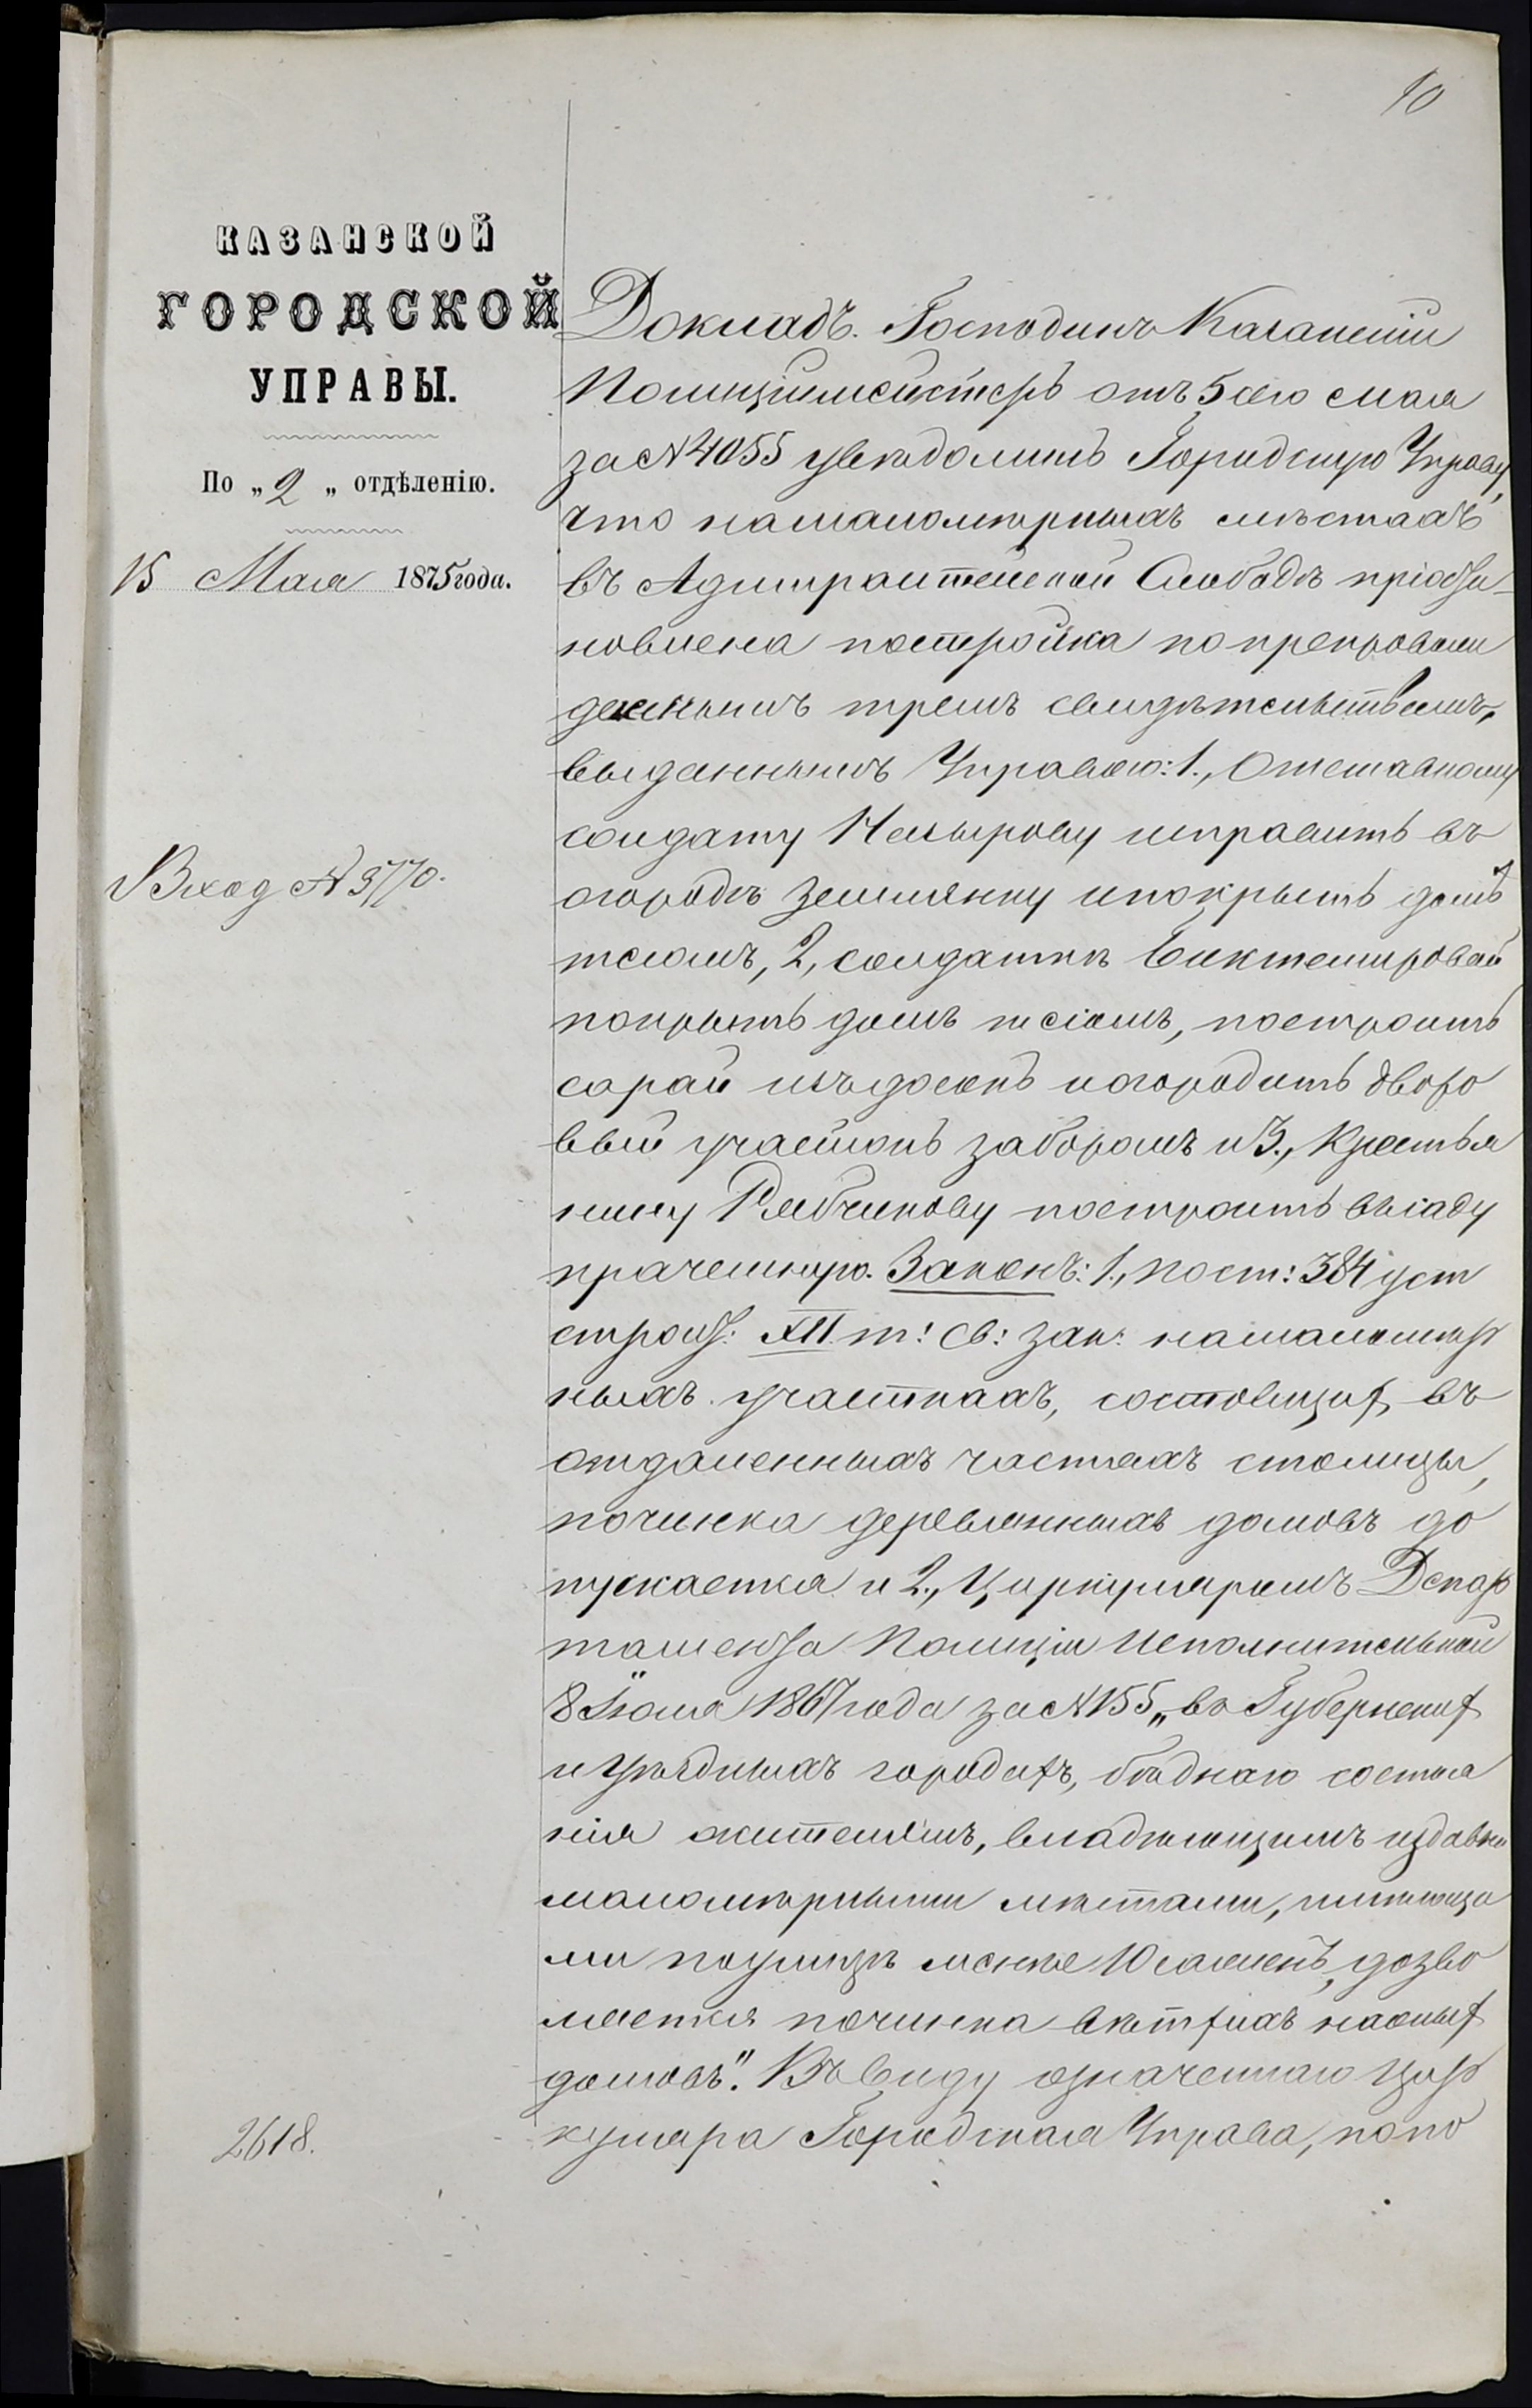 10
КАЗАНСКОЙ
ГОРОДСКОЙ
УПРАВЫ.
По „2„ отдѣленію.
15 Мая 1875 года.
Вход № 3770.
2618.
Докладъ. Господинъ Казанскій
Полиціймейстеръ отъ 5 сего мая
за № 4055 увѣдомилъ Городскую Управу,
что на маломѣрныхъ мѣстахъ
въ Адмиралтейской Слободѣ пріоста-
новлена постройка по препровож
деннымъ тремъ свидѣтельствамъ,
выданнымъ Управою: 1., Отставному
солдату исправить въ
огородѣ землянку и покрыть домъ
тесомъ, 2, солдаткѣ Биктемировой
покрыть домъ тесомъ, построить
сарай изъ досокъ и огородить дворо
вый участокъ заборомъ и 3., Крестья
нину Рябчикову построить въ саду
прачешную. Законъ: 1., по ст: 384 уст
строит: XII т: св: зак: на маломѣр
ныхъ участкахъ, состоящихъ въ
отдаленныхъ частяхъ столицы,
починка деревянныхъ домовъ до
пускается и 2., Циркуляромъ Депар
тамента Полиціи Исполнительной
8 Іюля 1867 года за № 155 „въ Губернскихъ
и уѣздныхъ городахъ, бѣднаго состоя
нія жителямъ, владѣющимъ издавна
маломѣрными мѣстами, имѣющи
ми по улицѣ менѣе 10 саженъ, дозво
ляется починка ветхихъ на оныхъ
домовъ". Въ виду означеннаго цир
куляра Городская Управа, по по